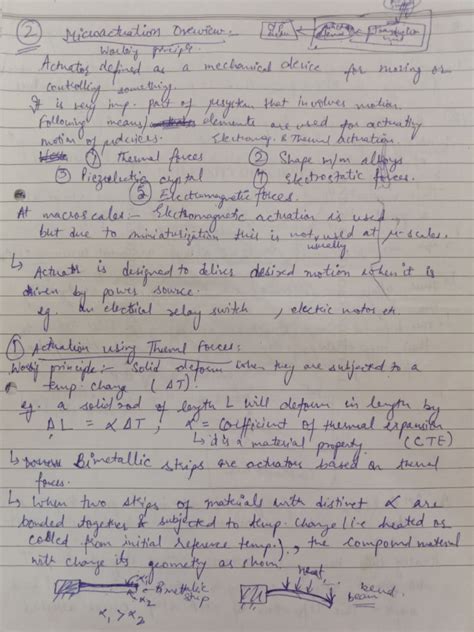 ② Microactuation Overview:-
Working principle.
Actuator defined as a mechanical device for moving or
controlling something.
It is very imp. part of μsystem that involves motion.
Following means elements are used for actuating
motion of μdevices. Electromag. & Thermal actuation.
① Thermal forces ② Shape m/m alloys
③ Piezoelectric crystal ④ Electrostatic forces.
⑤ Electromagnetic forces.
At macroscales:- Electromagnetic actuation is used,
but due to miniaturization this is not used at μ-scales.
usually
↳ Actuator is designed to deliver desired motion when it is
driven by power source.
eg. an electrical relay switch, electric motor etc
① Actuation using Thermal Forces:
Working principle:- Solid deform when they are subjected to a
temp. change (ΔT)
eg. a solid rod of length L will deform in length by
ΔL = αΔT, α = coefficient of thermal expansion
↳ it is a material property. (CTE)
↳ Bimetallic strips are actuators based on thermal
forces.
↳ When two strips of materials with distinct α are
bonded together & subjected to temp. change (i.e heated or
cooled from initial reference temp.), the compound material
will change its geometry as shown.
α₁ Bimetallic
α₂ strip
α₁ > α₂
heat
bend
beam